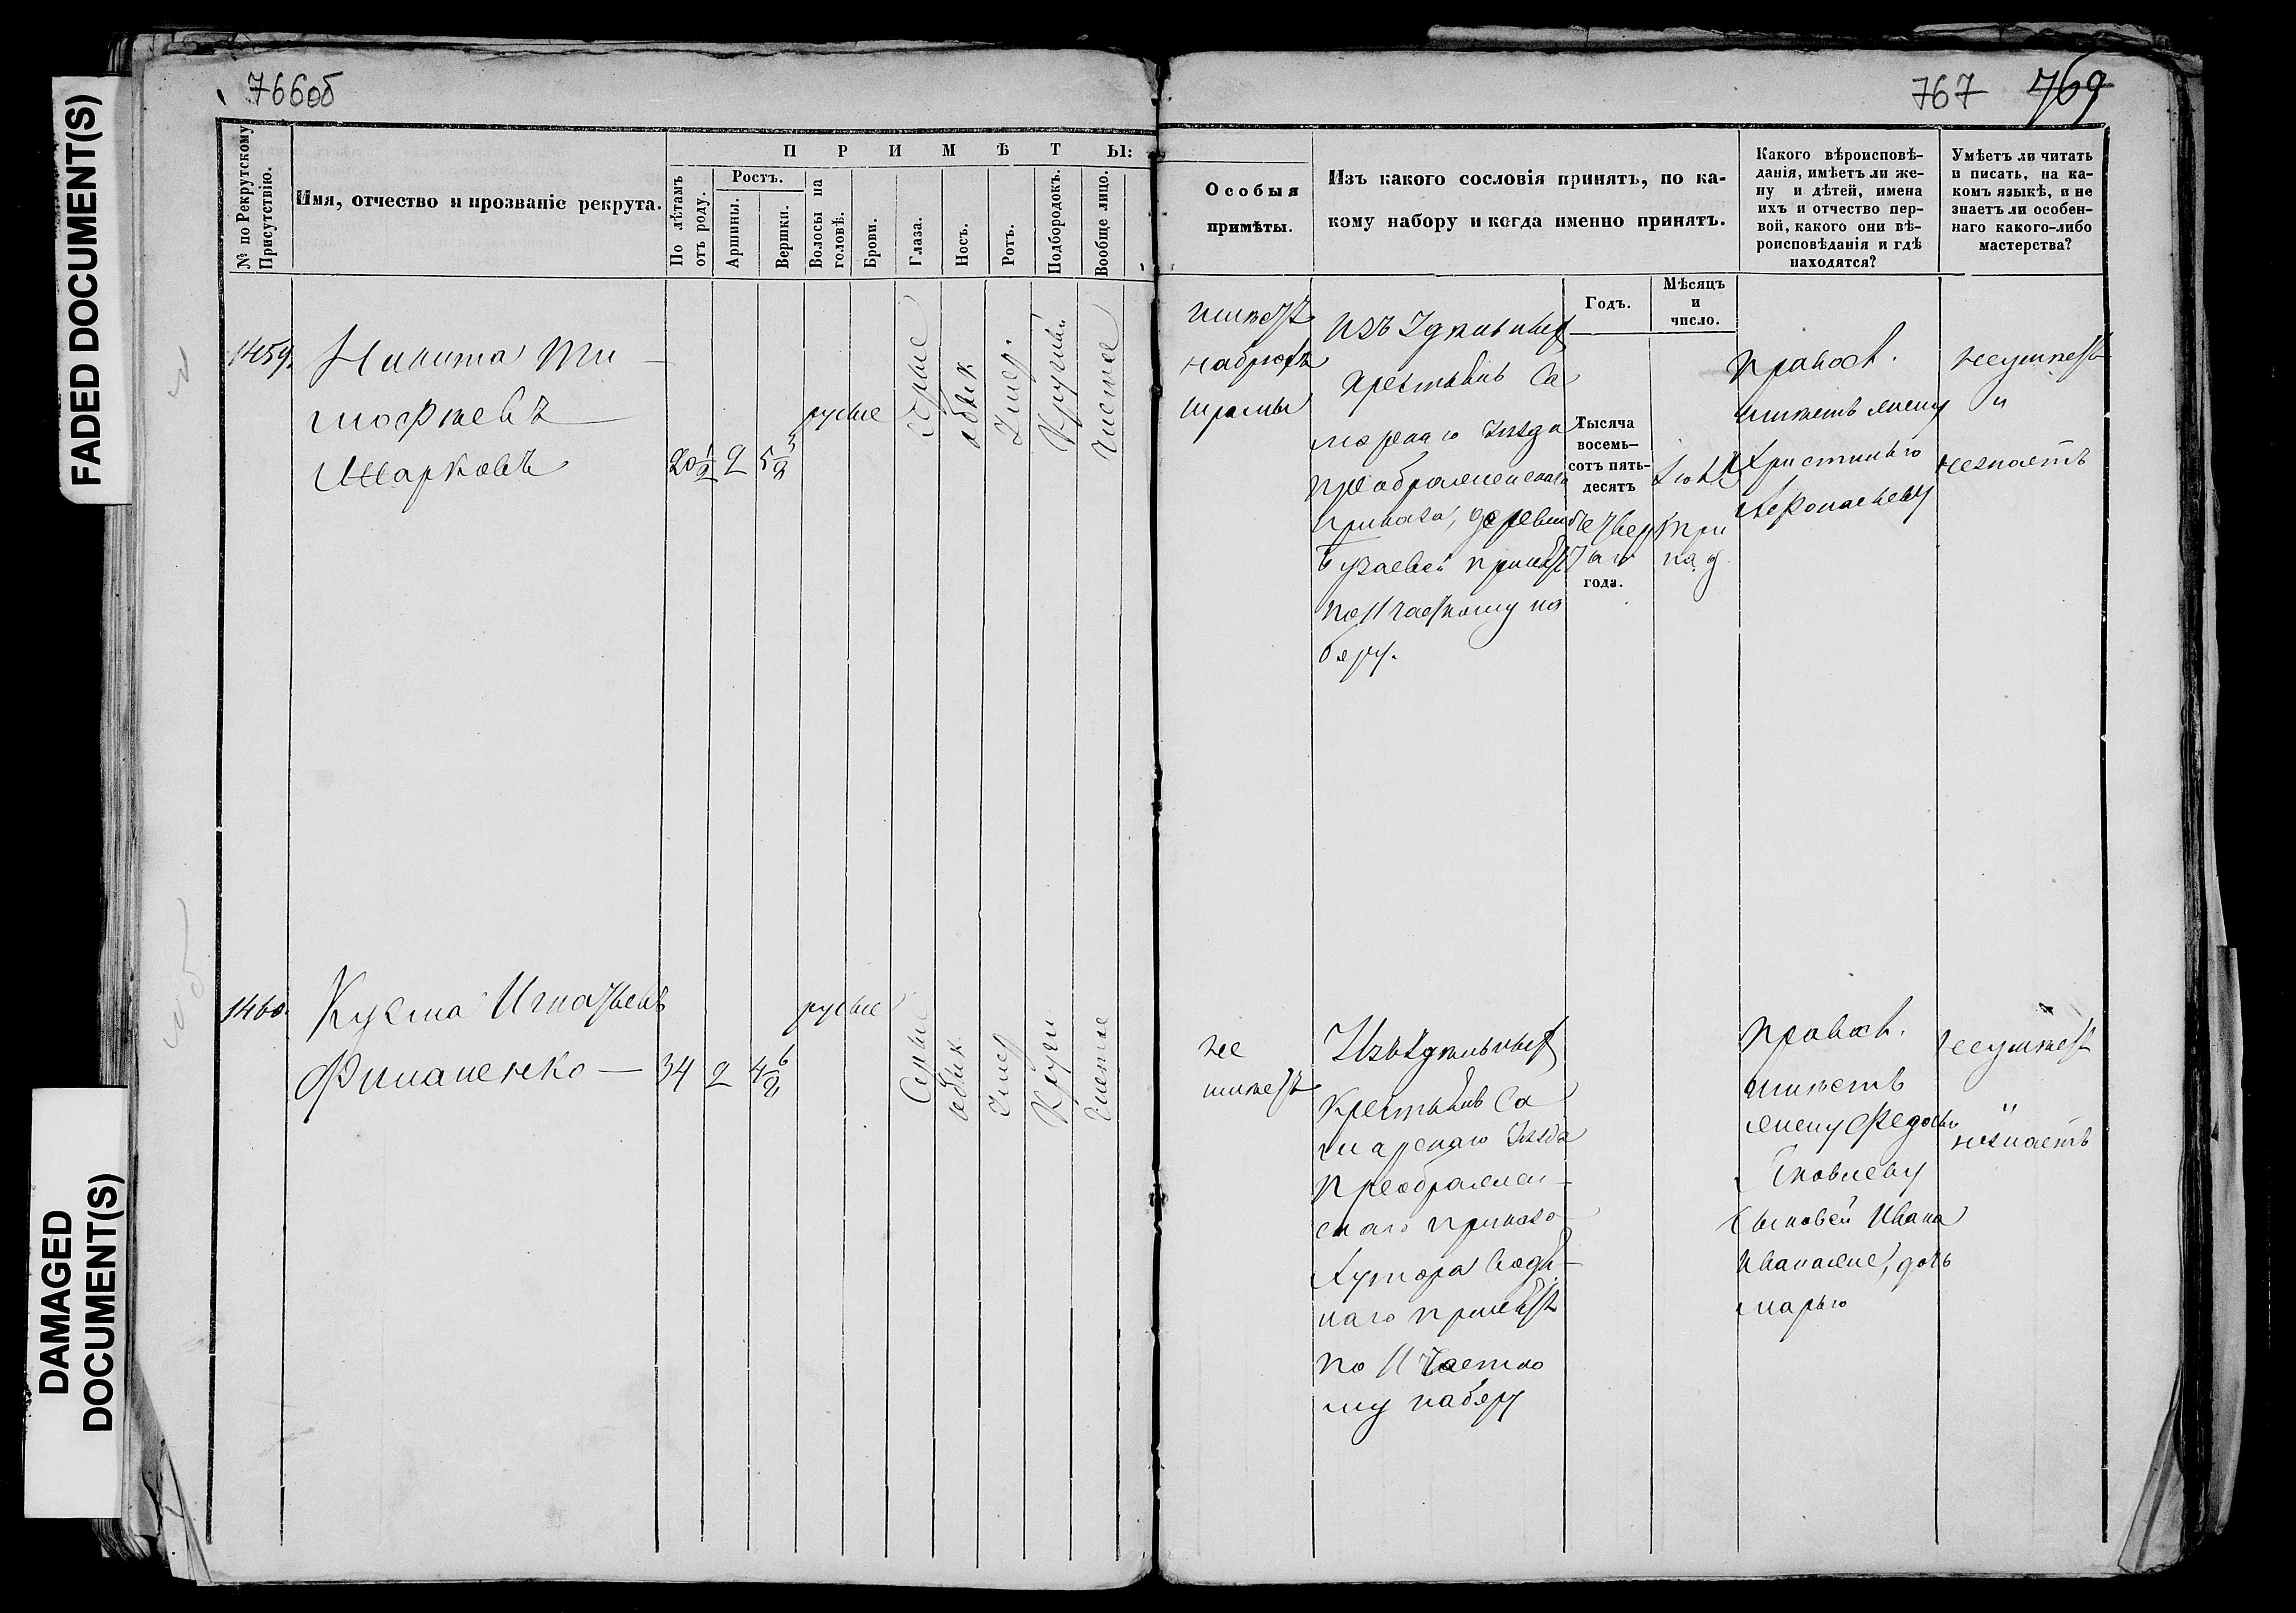 FADED DOCUMENT(S)
DAMAGED
DOCUMENT(S)
766об
767 769
№ по Рекрутскому
Присутствію.
Имя, отчество и прозваніе рекрута.
П Р И М Ѣ Т Ы:
По лѣтамъ
отъ роду.
Ростъ.
Аршины.
Вершки.
Волосы на
головѣ.
Брови.
Глаза.
Носъ.
Ротъ.
Подбородокъ.
Вообще лицо.
Особыя
примѣты.
Изъ какого сословія принятъ, по ка-
кому набору и когда именно принятъ.
Годъ.
Мѣсяцъ
и
число.
Какого вѣроисповѣ-
данія, имѣетъ ли же-
ну и дѣтей, имена
ихъ и отчество пер-
вой, какого они вѣ-
роисповѣданія и гдѣ
находятся?
Умѣетъ ли читать
и писать, на ка-
комъ языкѣ, и не
знаетъ ли особен-
наго какого-либо
мастерства?
1459.
Никита Ти
мофѣевъ
Шарковъ
20½ 2 5 5/8
русые
Сѣрые
обык
Умер.
Круглый
Чистое
имѣетъ
на брюхѣ
шрамы
Изъ Удѣльныхъ
крестьянъ Са
марскаго Уѣзда
Преображенскаго
приказа, деревни
Бузаевой принятъ
по II частному на
бору.
Тысяча
восемь-
сотъ пять-
десятъ
четвер
таго
года.
три
над
Правосл.
имѣетъ жену
Христинью
Афонасьеву
неумѣетъ
и
незнаетъ
1460.
Кузма Игнатьевъ
Филипенко — 34 2 4 6/8
русые
Сѣрые
обык
Умер
Кругл
Чистое
не
имѣетъ
Изъ Удѣльныхъ
Крестьянъ Са
марскаго Уѣзда
Преображен-
скаго приказа
Хутора
наго принятъ
по II Частно
му набору
Правосл.
имѣетъ
жену Федосью
Яковлеву
Сыновей Ивана
Ивана же, дочь
Марью
Неумѣетъ
и
незнаетъ